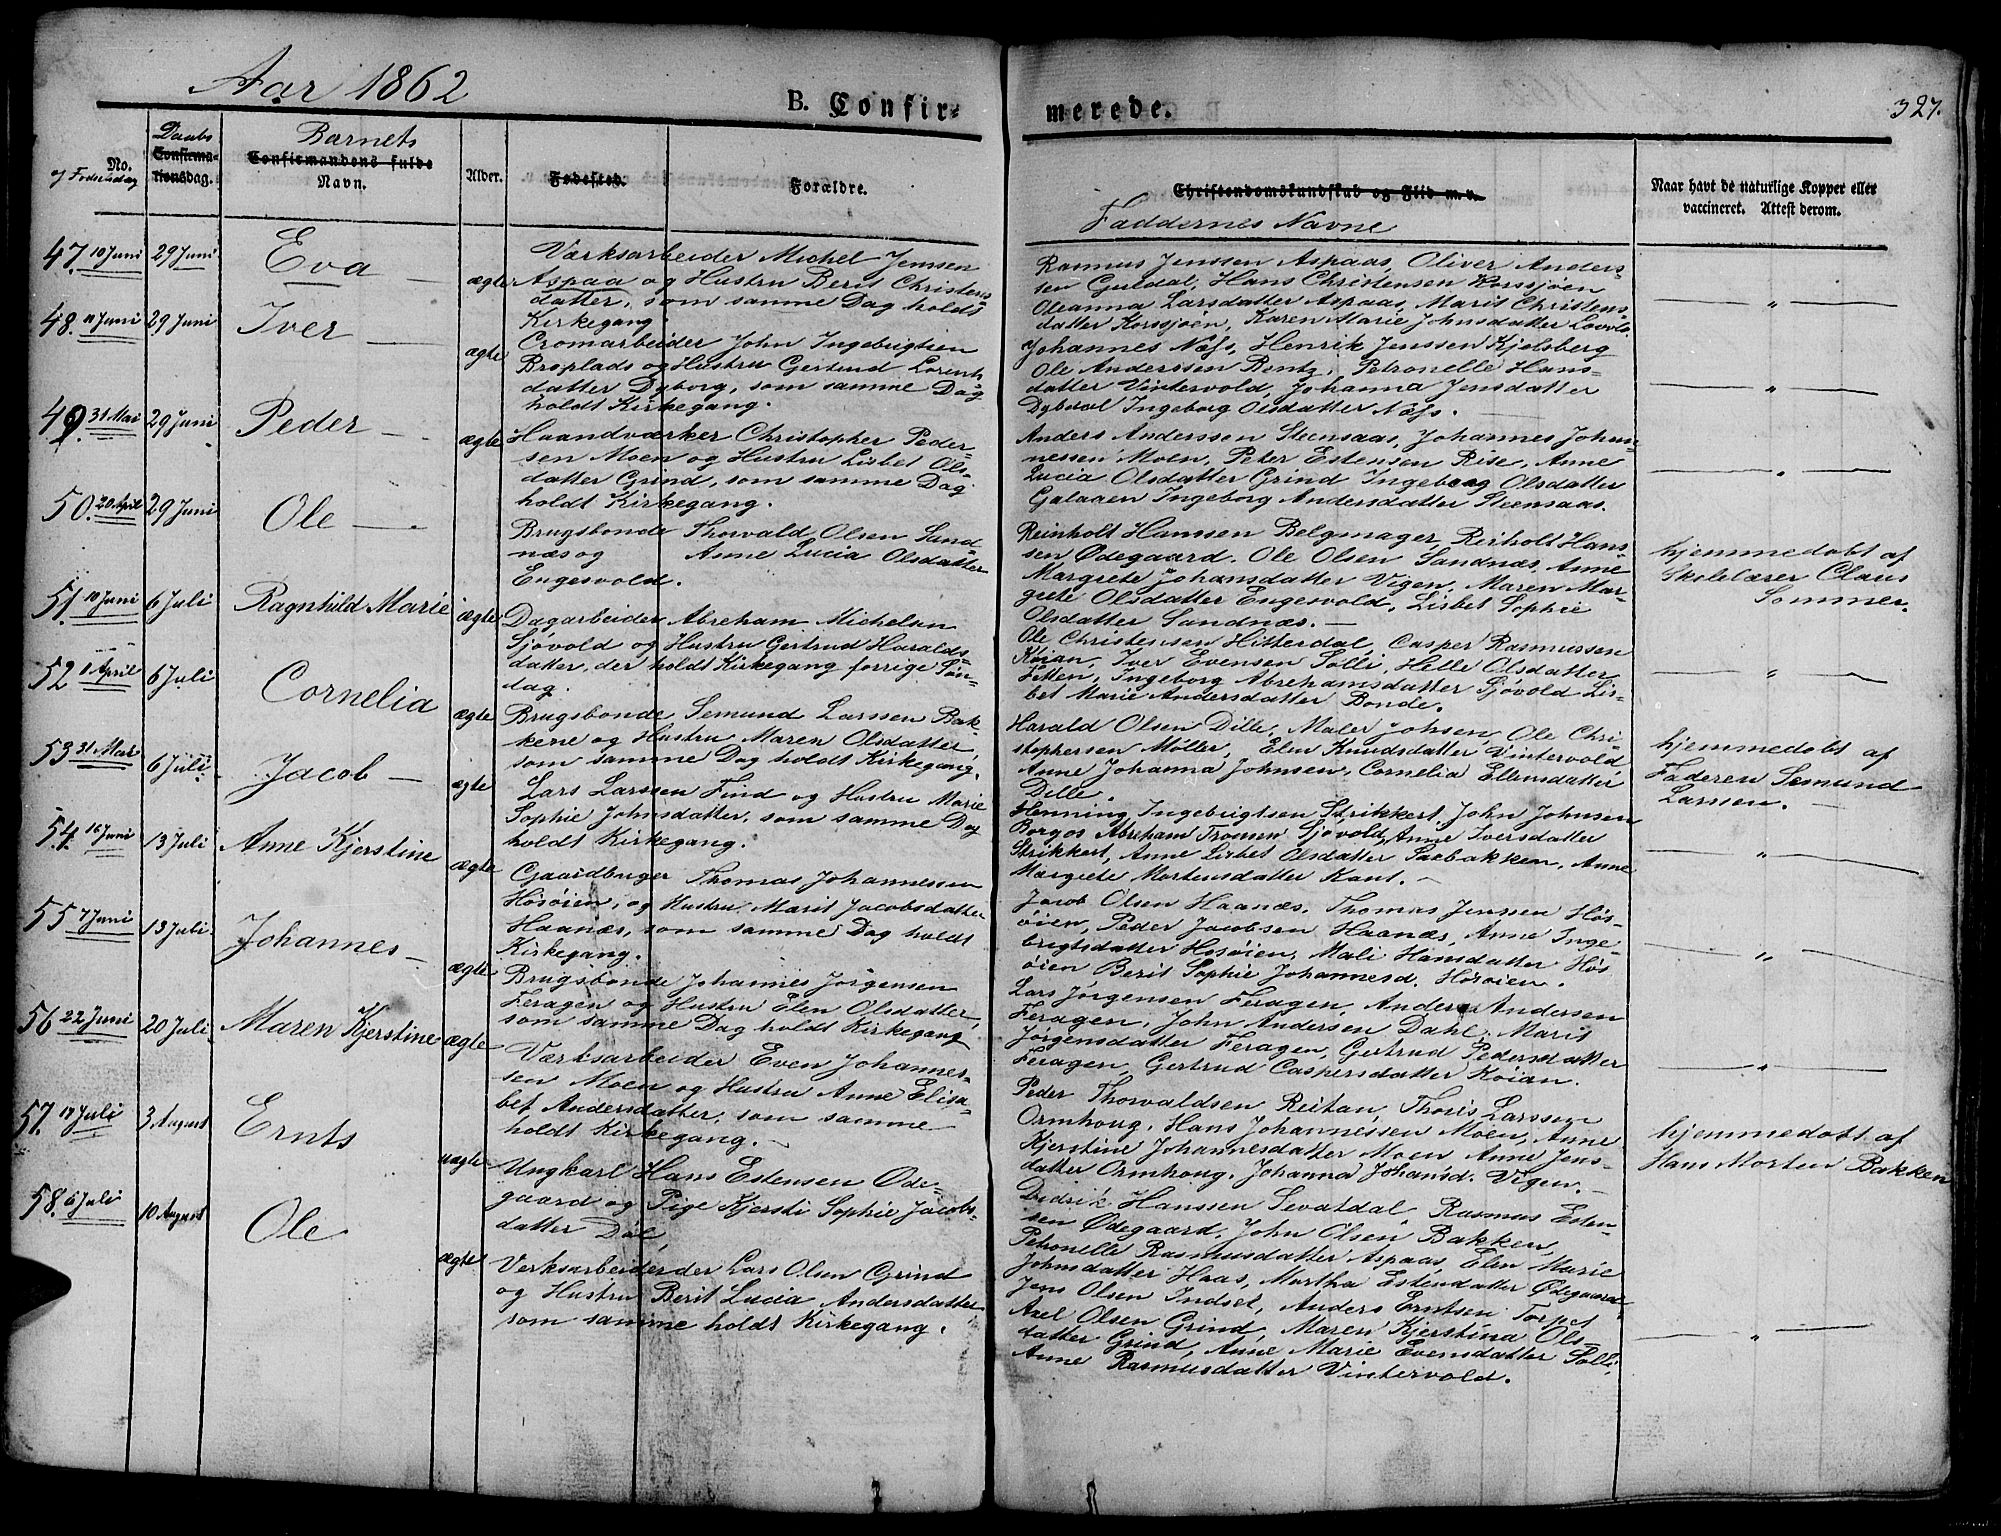 Aar 1862
B. Confir-
merede.
327.
No.
og Fødselsdag
Daabs
Confirma-
tionsdag.
Barnets
Confirmandens fulde
Navn.
Alder.
Fødested.
Forældre.
Christendomskundskab og Flid m. v.
Faddernes Navne
Naar havt de naturlige Kopper eller
vaccineret. Attest derom.
47. 10 Juni
29 Juni
Eva
ægte
Værksarbeider Michel Jenssen
Aspaa og Hustru Berit Christens-
datter, som samme Dag holdt
Kirkegang.
Rasmus Jenssen Aspaas, Oliver Anders-
sen Guldal, Hans Christensen Korssjøen
Oleanna Larsdatter Aspaas, Marit Christens-
datter Korssjøen, Karen Marie Johnsdatter
48. 11 Juni
29 Juni
Iver
ægte
Cromarbeider John Ingebrigtsen
Broplads og Hustru Gertrud Lorents
datter Dyborg, som samme Dag
holdt Kirkegang.
Johannes Næss, Henrik Jenssen Kjelsberg
Ole Anderssen Bentz, Petronelle Hans-
datter Vintervold, Johanna Jensdatter
Dybdal Ingeborg Olsdatter Næss.
49. 31 Mai
29 Juni
Peder
ægte
Haandværker Christopher Peder-
sen Moen og Hustru Lisbet Ols-
datter Grind, som samme Dag
holdt Kirkegang.
Anders Anderssen Steensaas, Johannes Johan-
nessen Moen, Peter Estensen Rise, Anne
Lucia Olsdatter Grind Ingeborg Olsdatter
Galaaen Ingeborg Andersdatter Steensaas.
50. 20 April
29 Juni
Ole
Brugsbonde Thorvald Olsen Sand-
næs og Anne Lucia Olsdatter
Engesvold.
Reinholt Hanssen Belgmager, Reiholt Hans-
sen Ødegaard. Ole Olsen Sandnæs, Anne
Margrete Johansdatter Vigen, Maren Mar-
grete Olsdatter Engesvold, Lisbet Sophie
Olsdatter Sandnæs.
hjemmedøbt af
Skolelærer Claus
Sommer.
51. 10 Juni
6 Juli
Ragnhild Marie
ægte
Dagarbeider Abreham Michelsen
Sjøvold og Hustru Gertrud Haralds-
datter, der holdt Kirkegang forrige Søn-
dag.
Ole Christensen Hitterdal, Casper Rasmussen
Koian, Iver Evensen Solli, Helle Olsdatter
Fetten, Ingeborg Abrehamsdatter Sjøvold Lis-
bet Marie Andersdatter Bonde.
52 1 April
6 Juli
Cornelia
ægte
Brugsbonde Semund Larssen Bak-
kene og Hustru Maren Olsdatter
som samme Dag holdt Kirkegang.
Harald Olsen Dille, Maler Johsen, Ole Chri-
stophersen Møller, Elen Knudsdatter Vintervold
Anne Johanna Johnsen, Cornelia Ellensdatter
Dille.
hjemmedøbt af
Faderen Semund
Larssen.
53 31 Mar
6 Juli
Jacob
ægte
Lars Larssen Find og Hustru Marie
Sophie Johnsdatter, som samme Dag
holdt Kirkegang.
Henning Ingebrigtsen Strikkert, John Johnsen
Borgos Abreham Sjøvold, Anne Iversdatter
Strikkert, Anne Lisbet Olsdatter Sæbakken, Anne
Margrete Mortensdatter Kant.
54 16 Juni
13 Juli
Anne Kjerstine
ægte
Gaardbruger Thomas Johannessen
Høsøien, og Hustru Marit Jacobsdatter
Haanæs, som samme Dag holdt
Kirkegang.
Jacob Olsen Haanæs, Thomas Jenssen Høs-
øien, Peder Jacobsen Haanæs, Anne Inge
brigtsdatter Høsøien, Mali Hansdatter Høs
øien Berit Sophie Johannesd. Høsøien.
55 7 Juni
13 Juli
Johannes
ægte
Brugsbonde Johannes Jørgensen
Feragen og Hustru Elen Olsdatter,
som samme Dag holdt Kirkegang
Lars Jørgensen Feragen, Anders Andersen
Feragen, John Andersen Dahl, Maris
Jørgensdatter Feragen, Gertrud Pedersdatter
Feragen, Gertrud Caspersdatter Koian.
56 22 Juni
20 Juli
Maren Kjerstine
ægte
Værksarbeider Even Johannes-
sen Moen og Hustru Anne Elisa-
bet Andersdatter, som samme
holdt Kirkegang.
Peder Thorvaldsen Reitan, Thoris Larssen
Ormhoug, Hans Johannessen Moen, Anne
Kjerstine Johannesdatter Moen Anne Jens-
datter Ormhoug, Johanna Johansd. Vigen.
57. 17 Juli
3 August
Ernts
uægte
Ungkarl Hans Estensen Øde-
gaard og Pige Kjersti Sophie Jacobs-
datter Døl
Didrik Hanssen Sevatdal, Rasmus Esten-
sen Ødegaard, John Olsen Bakken,
Petronelle Rasmusdatter Aspaas, Elen Marie
Johnsdatter Haas, Martha Estensdatter Ødegaard
hjemmedøbt af
Hans Morten Bakken
58. 6 Juli
10 August
Ole
ægte
Verksarbeider Lars Olsen Grind
og Hustru Berit Lucia Andersdatter
som samme holdt Kirkegang.
Jens Olsen Indset, Anders Erntsen Torpet
Axel Olsen Grind, Maren Kjerstina Ols-
datter Grind, Anne Marie Evensdatter Solli,
Anne Rasmusdatter Vintervold.